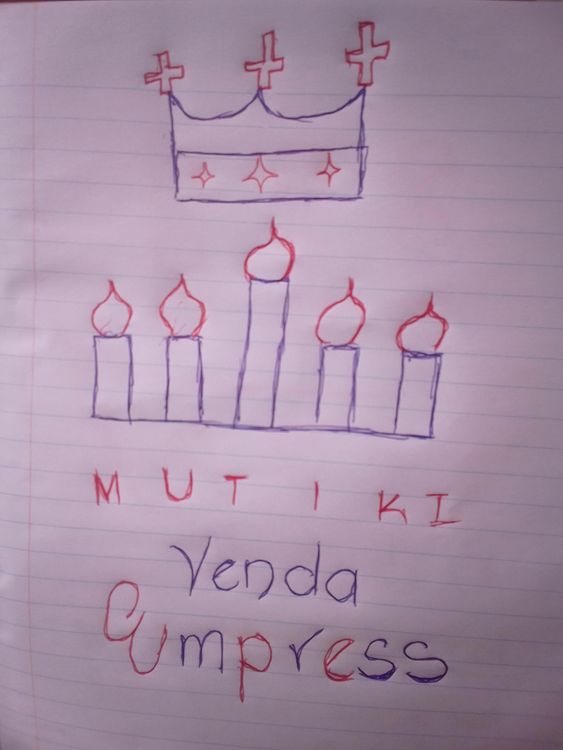 MUTIKI
Venda
Empress